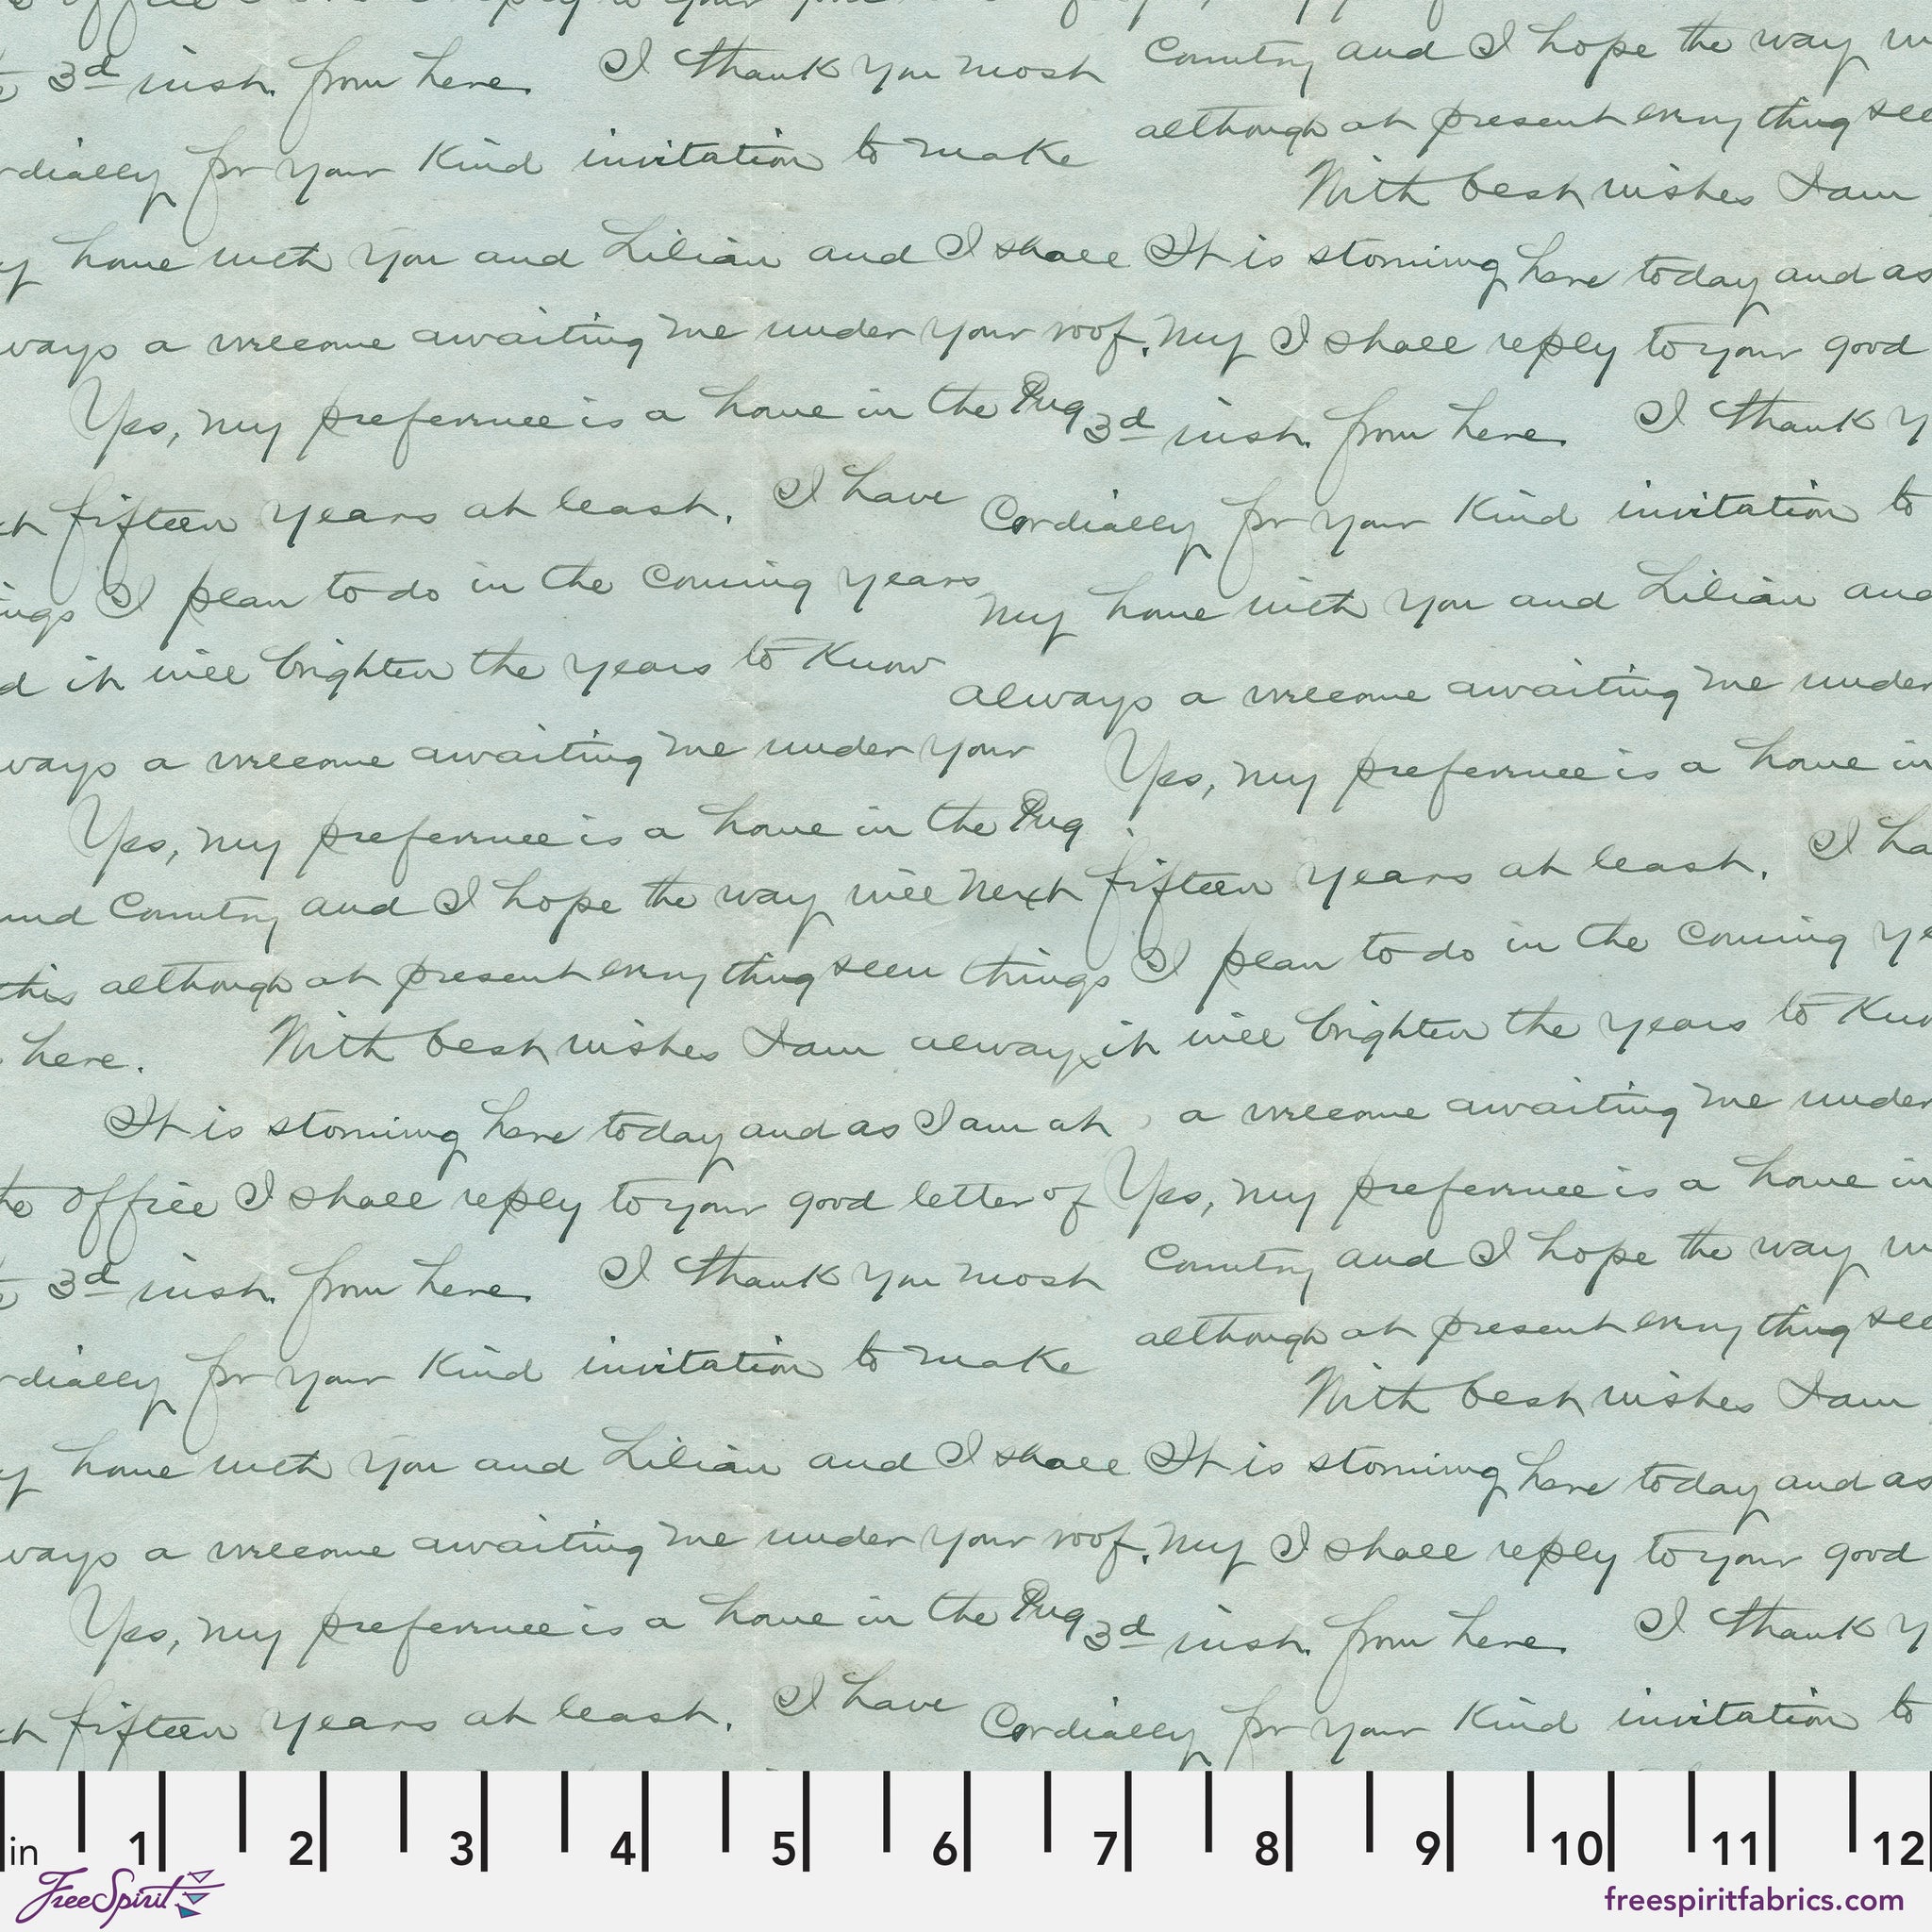 3d inst. from here. I thank you most Country and I hope the way
rdially for your kind invitation to make although at present everything see
With best wishes I am
y home with you and Lilian and I shall It is storming here today and as
ways a welcome awaiting me under your roof. My I shall reply to your good
Yes, my preference is a home in the Pug 3d inst. from here. I thank y
xt fifteen years at least. I have Cordially for your kind invitation to
ings I plan to do in the coming years my home with you and Lilian and
d it will brighten the years to know always a welcome awaiting me under
ways a welcome awaiting me under your Yes, my preference is a home in
Yes, my preference is a home in the Pug
und Country and I hope the way will next fifteen years at least. I ha
this although at present everything seem things I plan to do in the coming ye
here. With best wishes I am always it will brighten the years to Kno
It is storming here today and as I am at a welcome awaiting me under
the office I shall reply to your good letter of Yes, my preference is a home in
3d inst. from here. I thank you most Country and I hope the way
rdially for your kind invitation to make although at present everything see
With best wishes I am
y home with you and Lilian and I shall It is storming here today and as
ways a welcome awaiting me under your roof. My I shall reply to your good
Yes, my preference is a home in the Pug 3d inst. from here. I thank y
xt fifteen years at least. I have Cordially for your kind invitation to
in 1 2 3 4 5 6 7 8 9 10 11 12
FreeSpirit freespiritfabrics.com